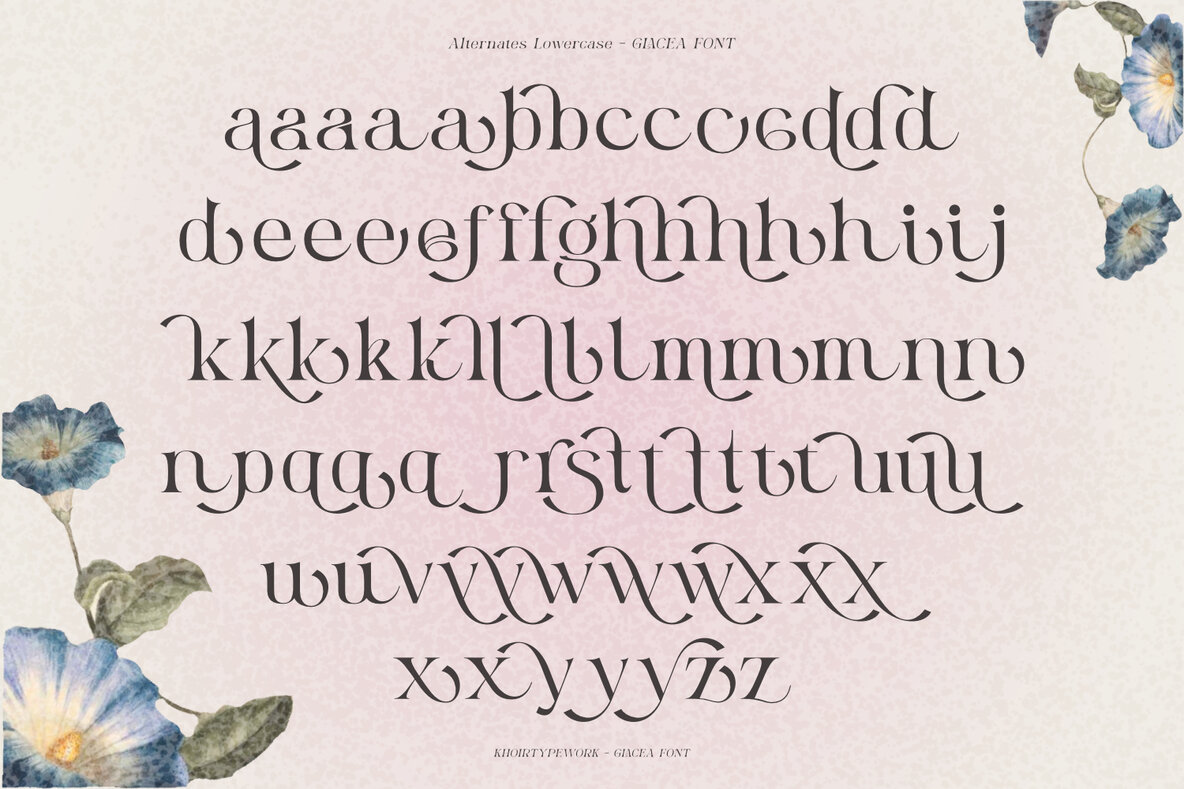 Alternates Lowercase - GIACEA FONT
aaaaabbccccdddd
deeeefffghhhhhiij
kkkkklllllmmmmnnn
npqqqrrsttttttuuu
uuvvvwwwwxxx
xxyyyzz
KHOIRTYPEWORK - GIACEA FONT